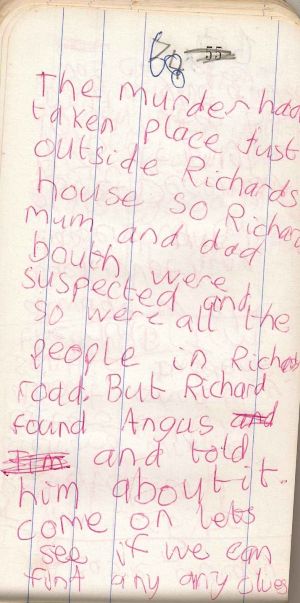 68 55
The murder had
taken place just
outside Richards
house so Richard
mum and dad
bouth were
suspected and
so were all the
people in Richards
road. But Richard
found Angus and
and told
him about it.
come on lets
see if we can
find any any clues